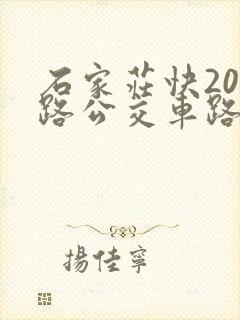 石家莊快20
路公交車路
揚佳寧